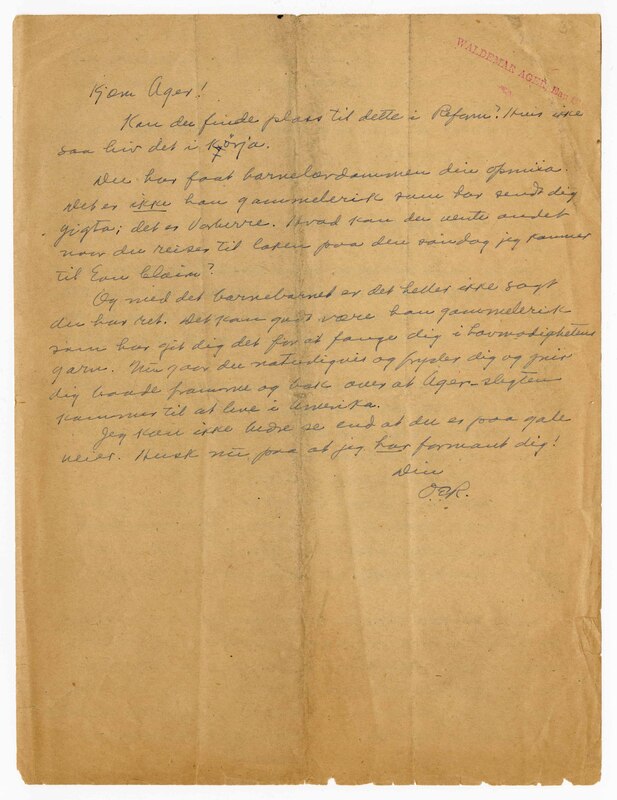 WALDEMAR AGER, Eau
Kjære Ager!
Kan du finde plass til dette i Reform? Hvis ikke
saa hiv det i Kørja.
Du har faat barnelærdommen din opmiia.
Det er ikke han gammelerik som har sendt dig
gigta; det er Vorherre. Hvad kan du vente andet
naar du reiser til laken paa den søndag jeg kommer
til Eau Claire?
Og med det barnebarnet er det heller ikke sagt
du har ret. Det kan godt være han gammelerik
som har git dig det for at fange dig i hovmodighetens
garn. Nu gaar du naturligvis og fryder dig og
dig baade framme og bak over at Ager-slegten
kommer til at leve i Amerika.
Jeg kan ikke bedre se end at du er paa gale
veier. Husk nu paa at jeg har formant dig!
Din
O.E.R.